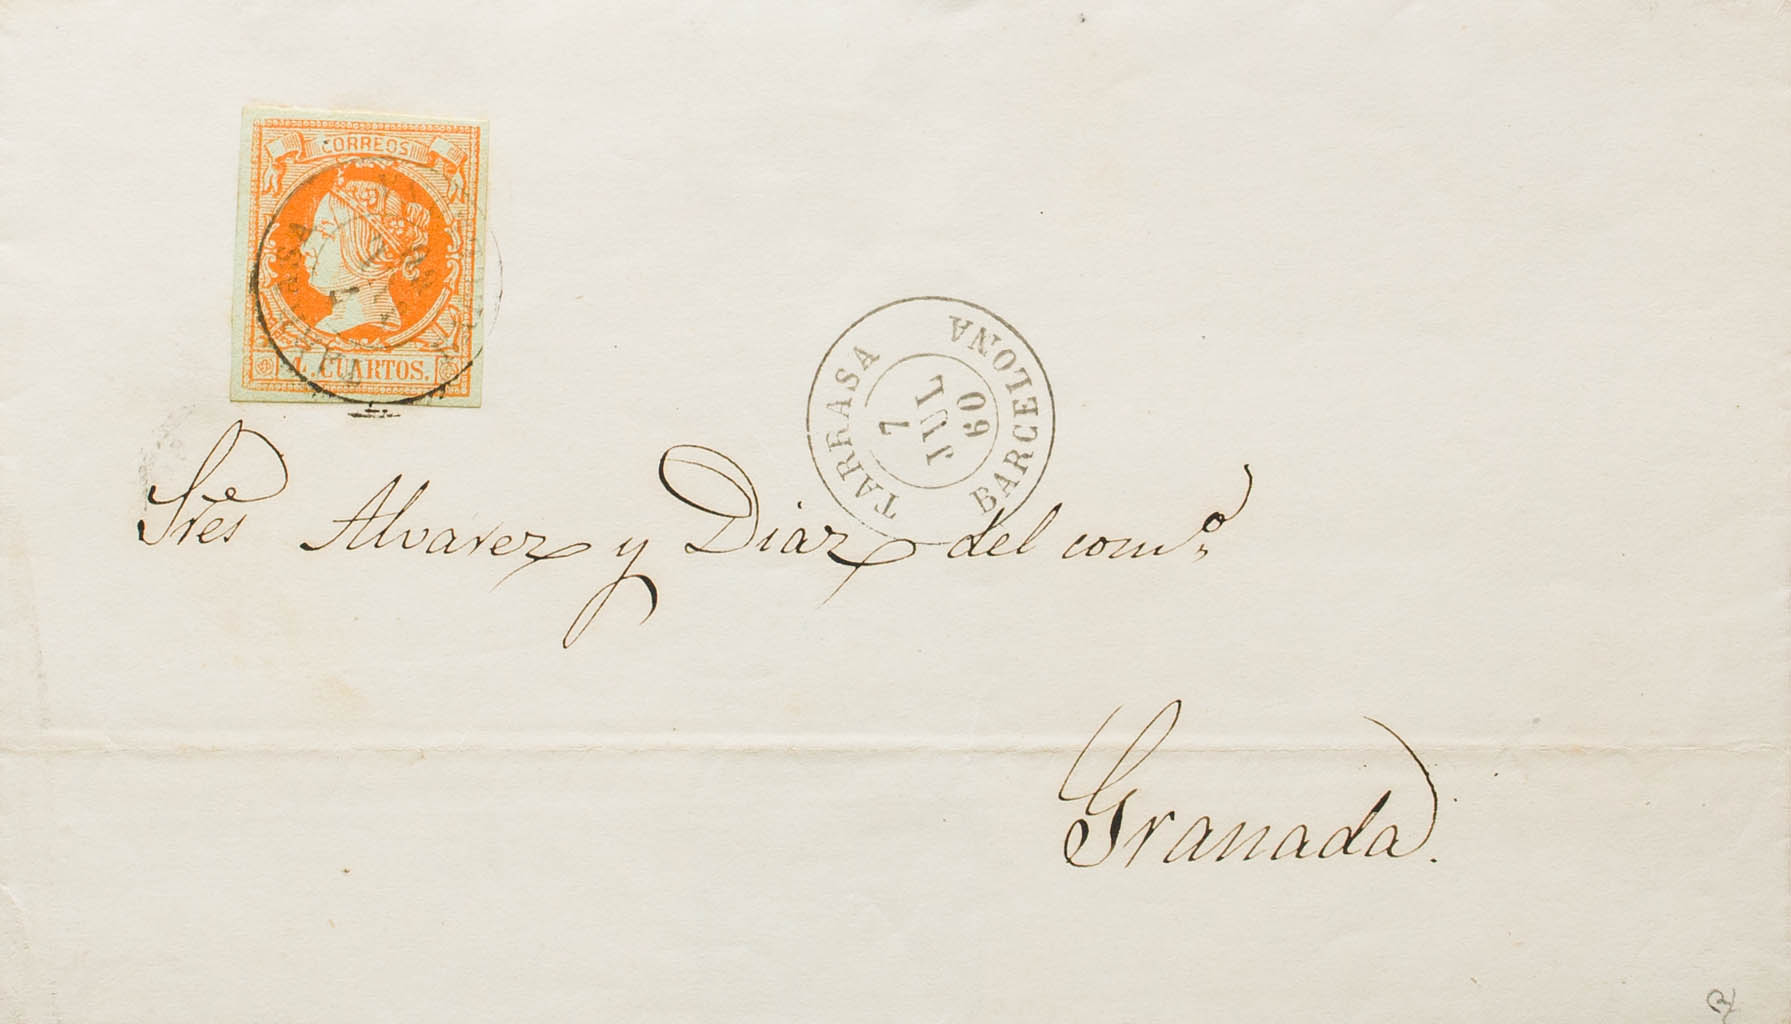 CORREOS
4 CUARTOS.
TARRASA
7
JUL
60
BARCELONA
Sres Alvarez y Diaz del comº
Granada.